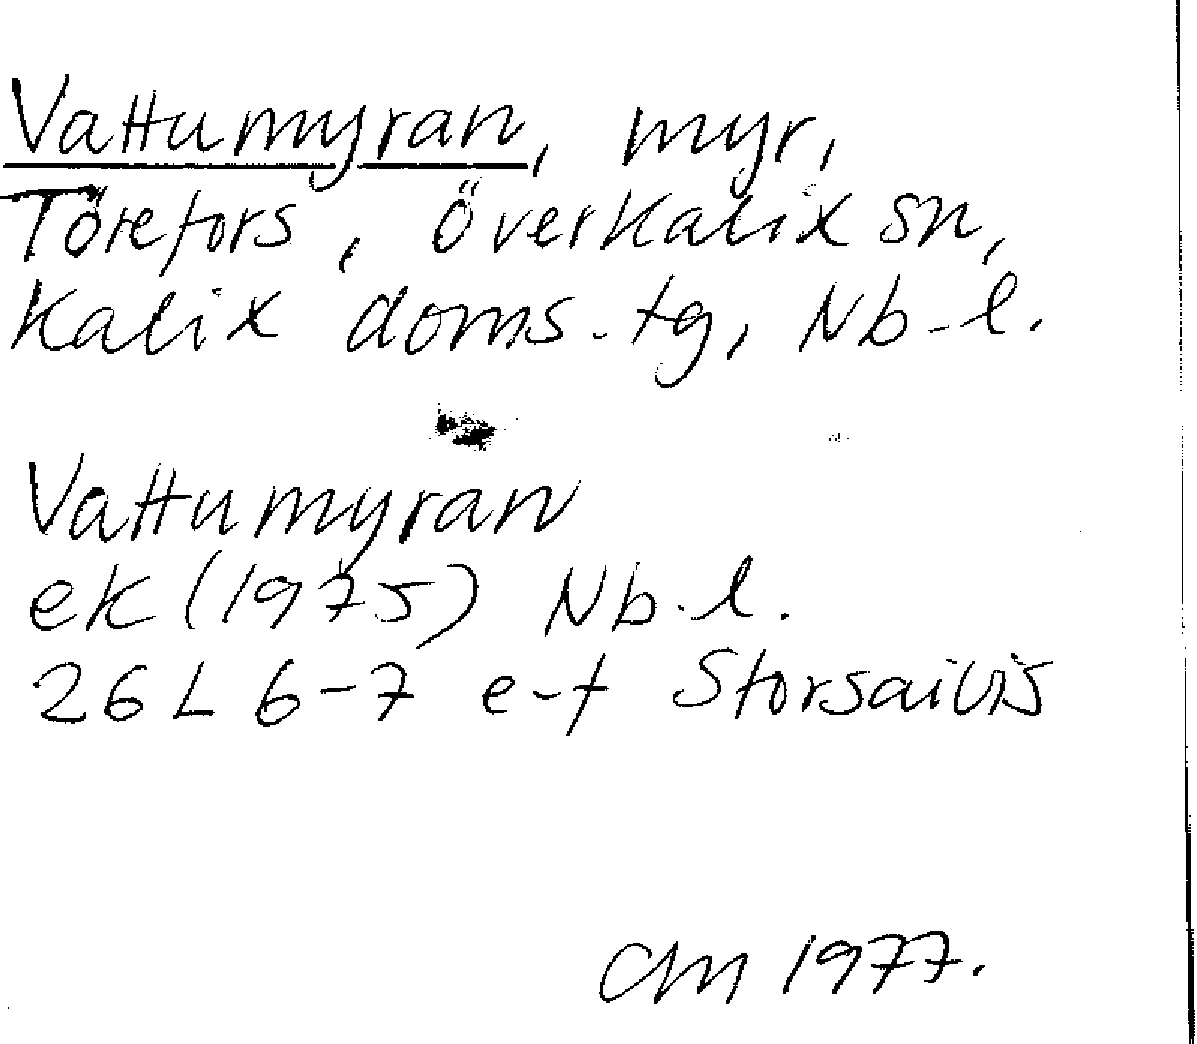 Vattumyran, myr,
Törefors, Överkalix sn,
Kalix doms.tg, Nb-l.
Vattumyran
ek (1975) Nb.l.
26 L 6-7 e-f Storsaivis
CM 1977.